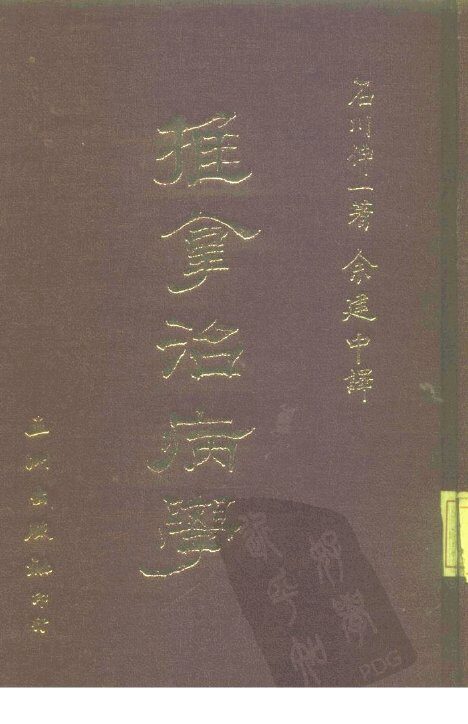 石川伸一著 余建中譯
推拿治病學
五洲出版社印行
PDG